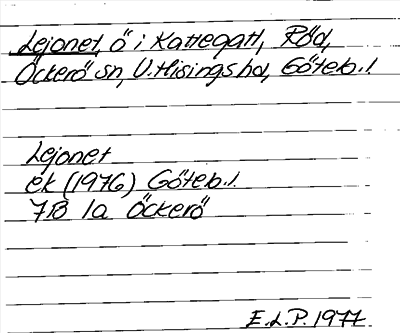 Lejonet, ö i Kattegatt, Röd,
Öckerö sn, V. Hisings hd, Göteb. l.
Lejonet
ek (1976) Göteb. l.
7B 1a Öckerö
E.L.P. 1977